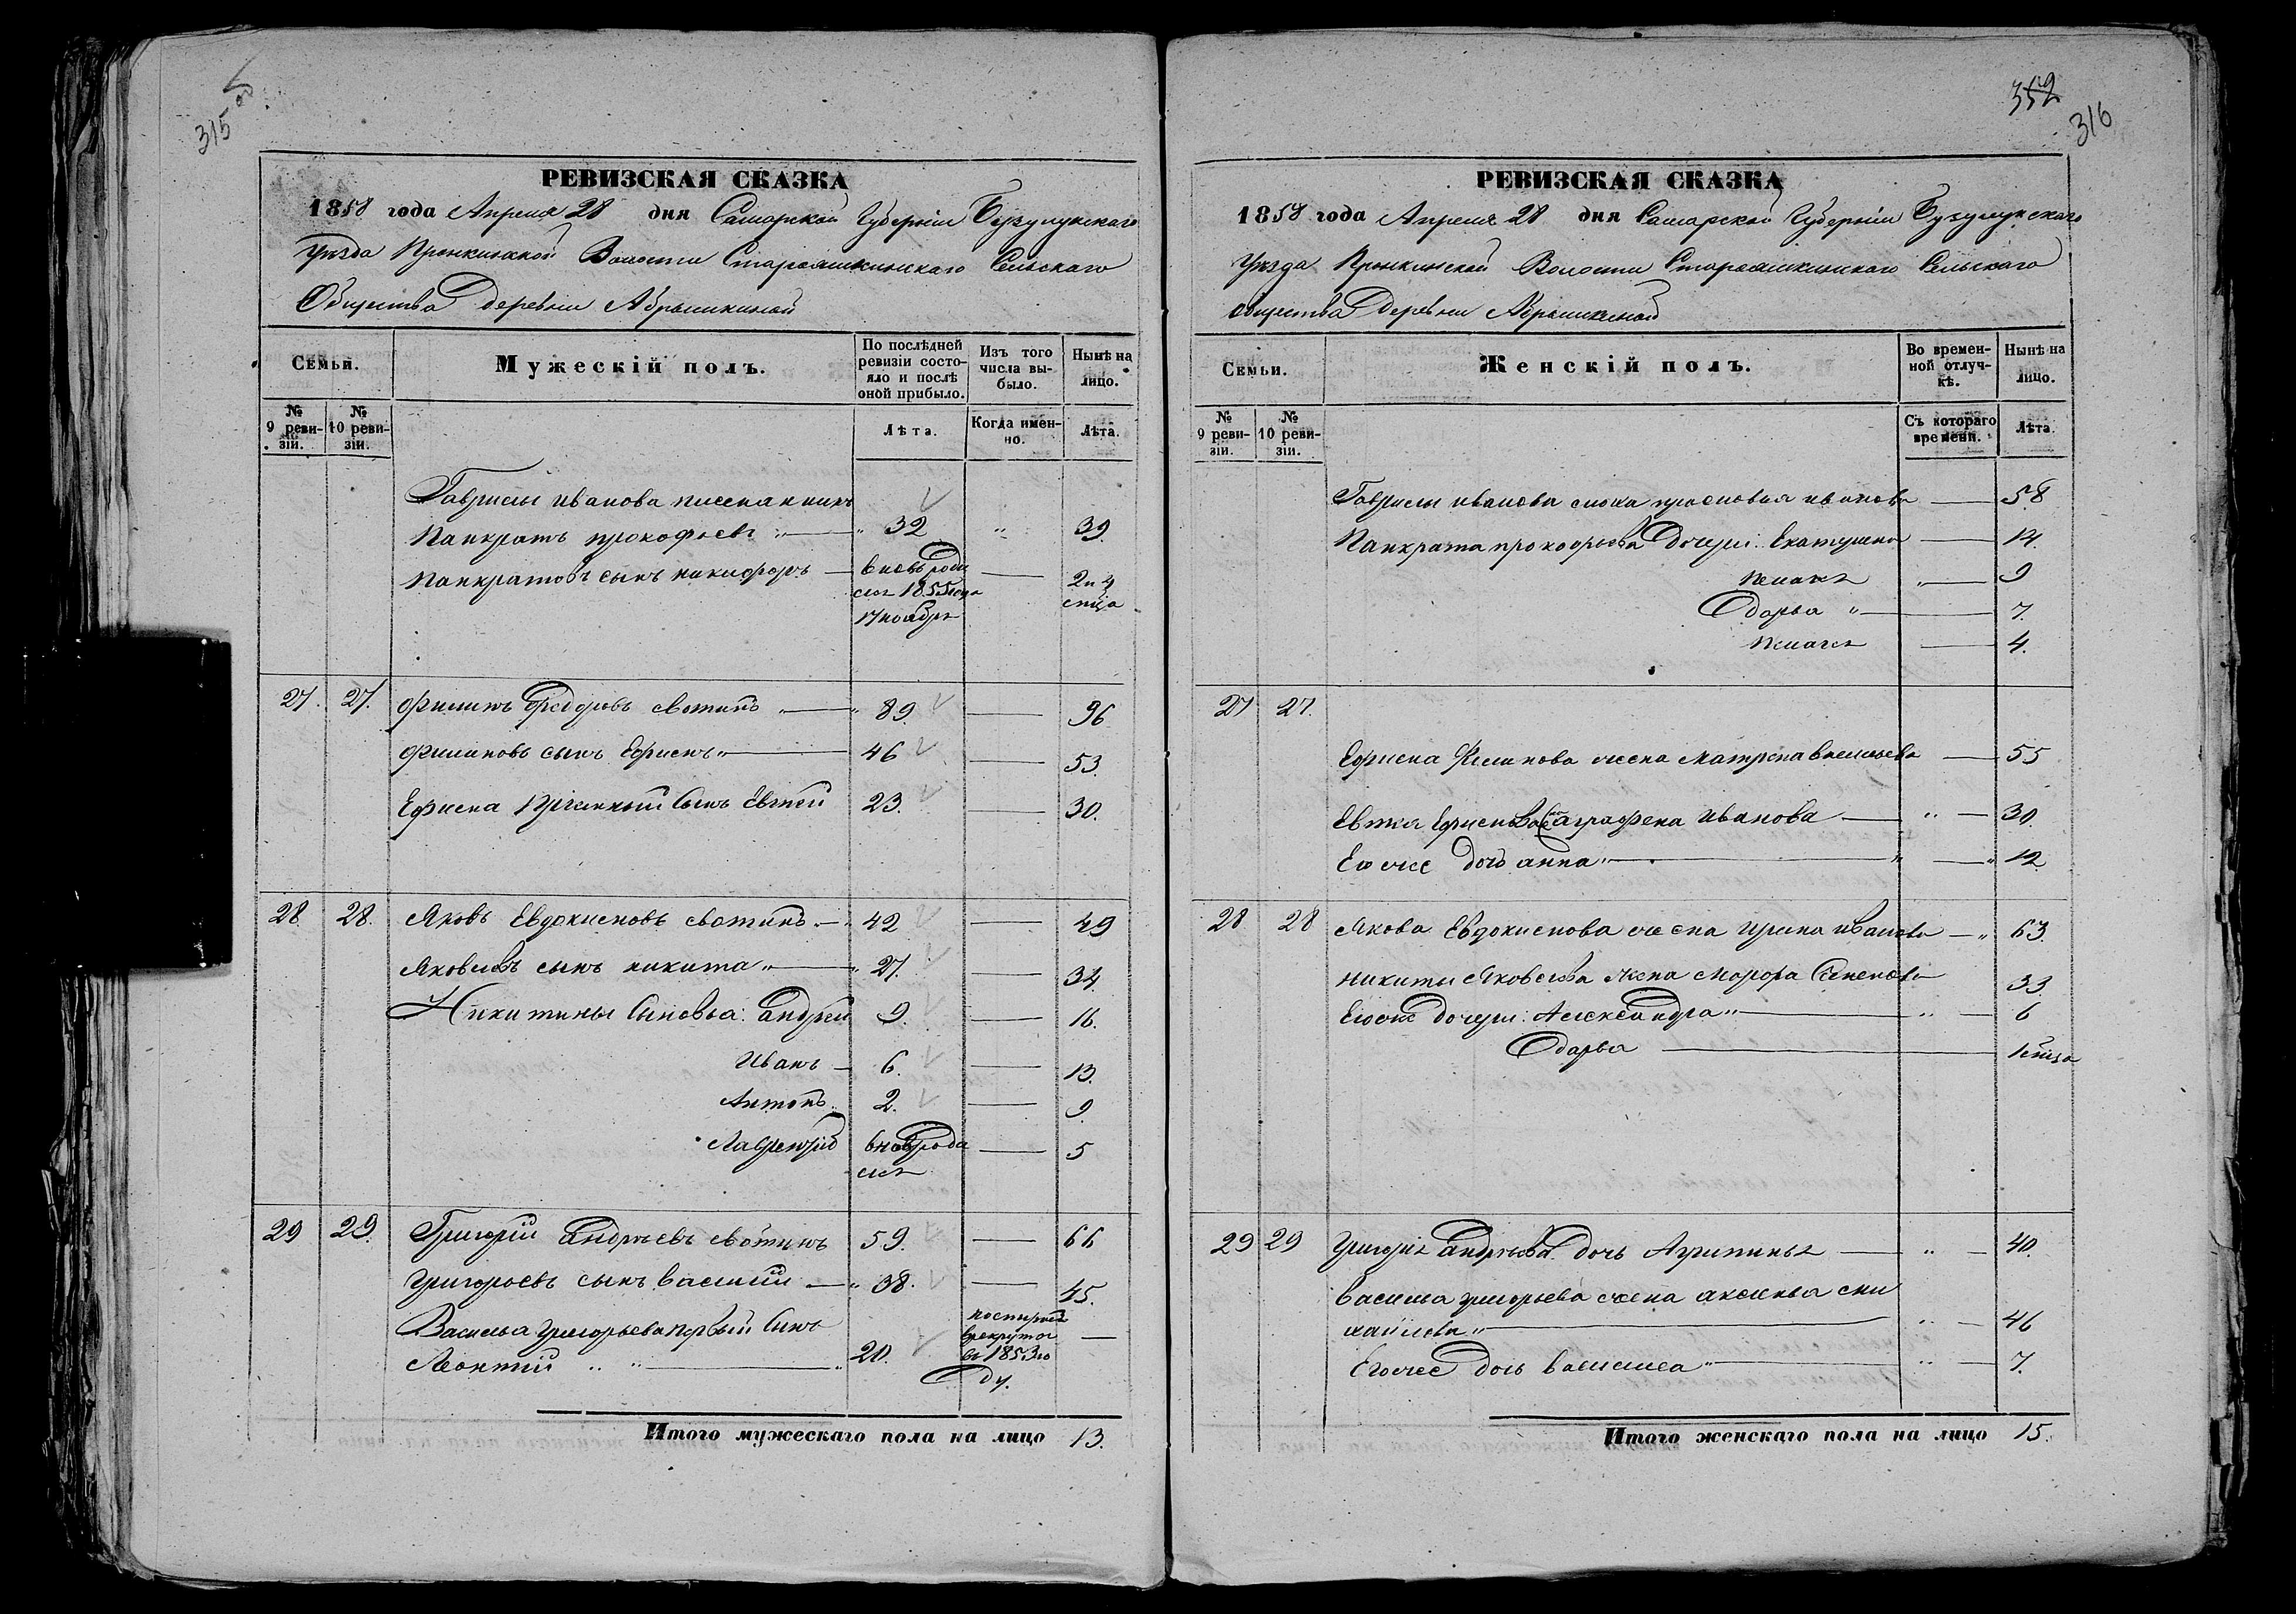 315 об
РЕВИЗСКАЯ СКАЗКА
1858 года Апреля 28 дня Самарской Губерніи Бузулукскаго
Уѣзда Пронкинской Волости Староашкинскаго Сельскаго
Общества Деревни Абрышкиной
Семьи.
Мужескій полъ.
По послѣдней ревизіи состо-
яло и послѣ
оной прибыло.
Изъ того
числа вы-
было.
Нынѣ на
лицо.
№
9 реви-
зіи.
№
10 реви-
зіи.
Лѣта.
Когда имен-
но.
Лѣта.
Гаврилы Иванова племянникъ
Панкратъ прокофьевъ 32 " 39.
Панкратовъ сынъ никифоръ вновь роди
лся 1855 года
17 ноября
27. 27. Филипъ Федоровъ святинъ 89. 96
Филиповъ сынъ Ефремъ 46 53.
Ефрема сынъ Евтей 23. 30.
28 28. Яковъ Евдокимовъ святинъ 42 49
Яковлевъ сынъ никита 27. 34.
Никитины Сыновья: Андрей 9. 16.
Иванъ 6. 13.
Антонъ 2. 9.
Лаврентій вновь роди
лся 5
29 29. Григорій Андреевъ святинъ 59. 66
Григорьевъ сынъ василий 38. 45.
Василья Григорьева первый Сынъ
Леонтий 20. поступилъ
в рекруты
въ 1853 го
ду.
Итого мужескаго пола на лицо 13.
352
316
РЕВИЗСКАЯ СКАЗКА
1858 года Апреля 28 дня Самарской Губерніи Бузулукскаго
Уѣзда Пронкинской Волости Староашкинскаго Сельскаго
общества Деревни Абрышкиной
Семьи.
Женскій полъ.
Во времен-
ной отлуч-
кѣ.
Нынѣ на
лицо.
№
9 реви-
зіи.
№
10 реви-
зіи.
Съ котораго
времени.
Лѣта.
Гаврилы иванова жена прасковья иванова 58
Панкрата прокофьева Дочери: Екатерина 14.
9
Дарья 7.
4.
27 27.
Ефрема Филипова жена матрена васильева 55
Евтея Ефремова жена аграфена Иванова 30.
Его же дочь анна 12
28 28 Якова Евдокимова жена Ирина иванова 63.
никиты Яковлева жена Марфа Семенова 33.
Его же дочери: Александра 6
Дарья
29 29 Григорья Андреева дочь 40.
василья григорьева жена аксинья ми
хайлова 46
Его же дочь василиса 7.
Итого женскаго пола на лицо 15.